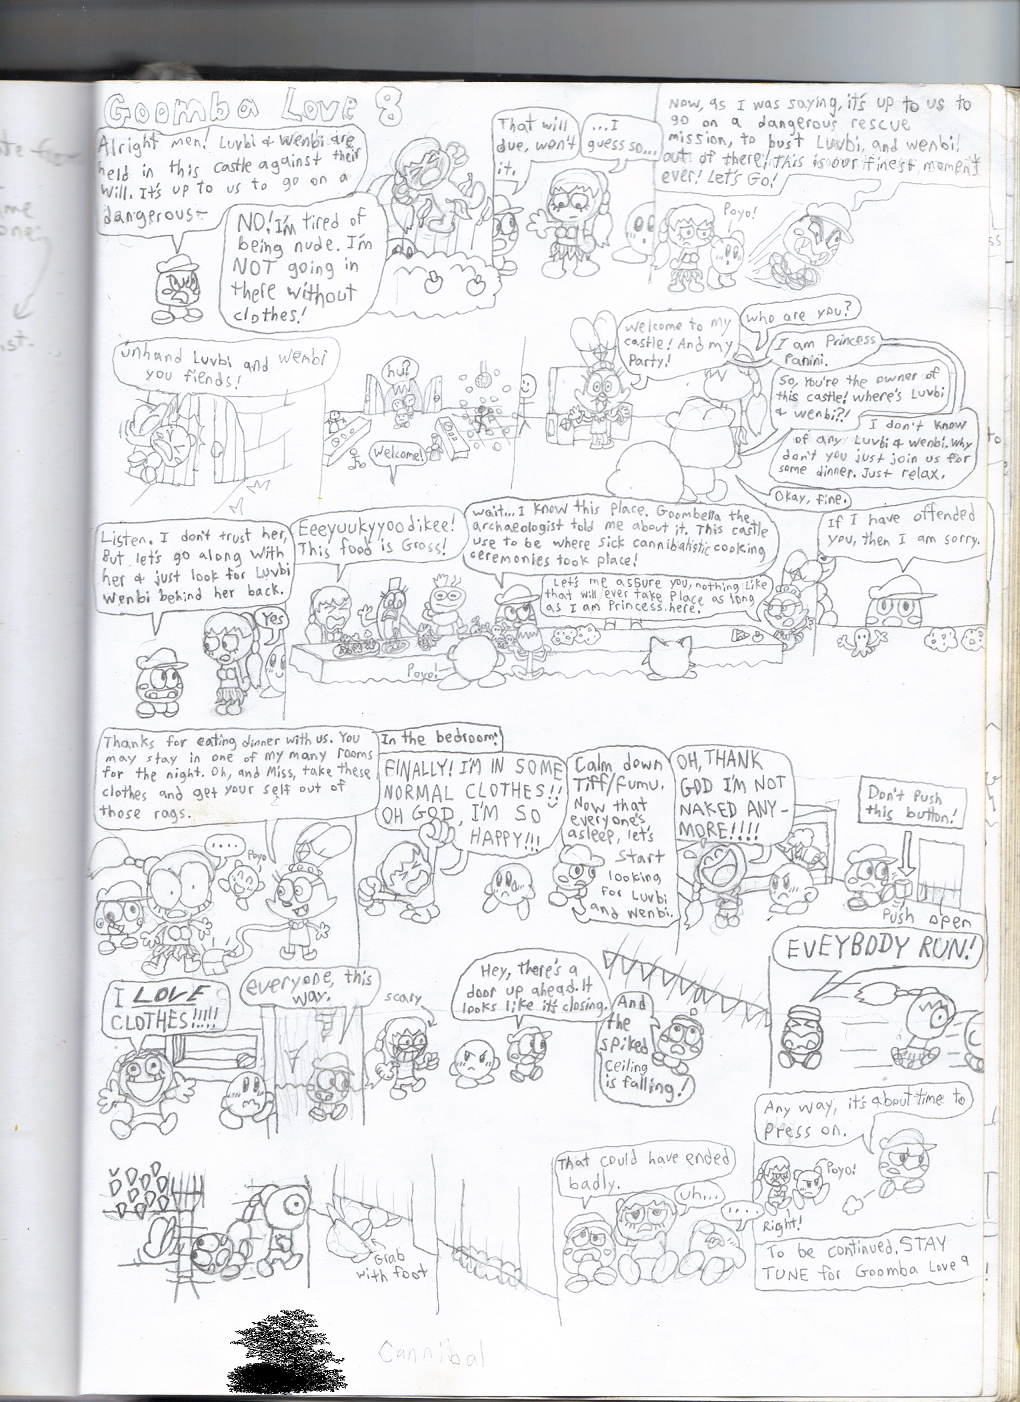 Goomba Love 8
Alright men! Luvbi & Wenbi are
held in this castle against their
will. It's up to us to go on a
dangerous-
NO! I'm tired of
being nude. I'm
NOT going in
there without
clothes!
That will
due, won't
it.
...I
guess so...
Now, as I was saying, it's up to us to
go on a dangerous rescue
mission, to bust Luvbi, and wenbi!
out of there! This is our finest moment
ever! Let's Go!
Poyo!
unhand Luvbi and wenbi
you fiends!
hu?
Welcome!
Welcome to my
castle! And my
Party!
who are you?
I am Princess
Panini.
So, You're the owner of
this castle! where's Luvbi
& wenbi?!
I don't know
of any Luvbi & wenbi. why
don't you just join us for
some dinner. Just relax.
Okay, fine.
Listen. I don't trust her,
But let's go along with
her & just look for Luvbi
Wenbi behind her back.
Yes
Eeeyuukyyoodikee!
This food is Gross!
Poyo!
wait... I know this place. Goombella the
archaeologist told me about it. This castle
use to be where sick cannibalistic cooking
ceremonies took place!
Let's me assure you, nothing like
that will ever take Place as long
as I am Princess here.
If I have offended
you, then I am sorry.
Thanks for eating dinner with us. You
may stay in one of my many rooms
for the night. Oh, and Miss, take these
clothes and get your self out of
those rags.
....
Poyo
In the bedroom:
FINALLY! I'M IN SOME
NORMAL CLOTHES!!
OH GOD, I'M SO
HAPPY!!!
Calm down
Tiff/Fumu.
Now that
everyone's
asleep, let's
start
looking
for Luvbi
and Wenbi.
OH, THANK
GOD I'M NOT
NAKED ANY-
MORE!!!!
Don't Push
this button!
Push open
I LOVE
CLOTHES!!!!!
everyone, this
way.
scary
Hey, there's a
door up ahead. It
looks like it's closing.
And
the
spiked
ceiling
is falling!
EVEYBODY RUN!
Grab
with foot
That could have ended
badly.
uh...
...
Any way, it's about time to
Press on.
Poyo!
Right!
To be continued. STAY
TUNE for Goomba Love 9
!
Cannibal